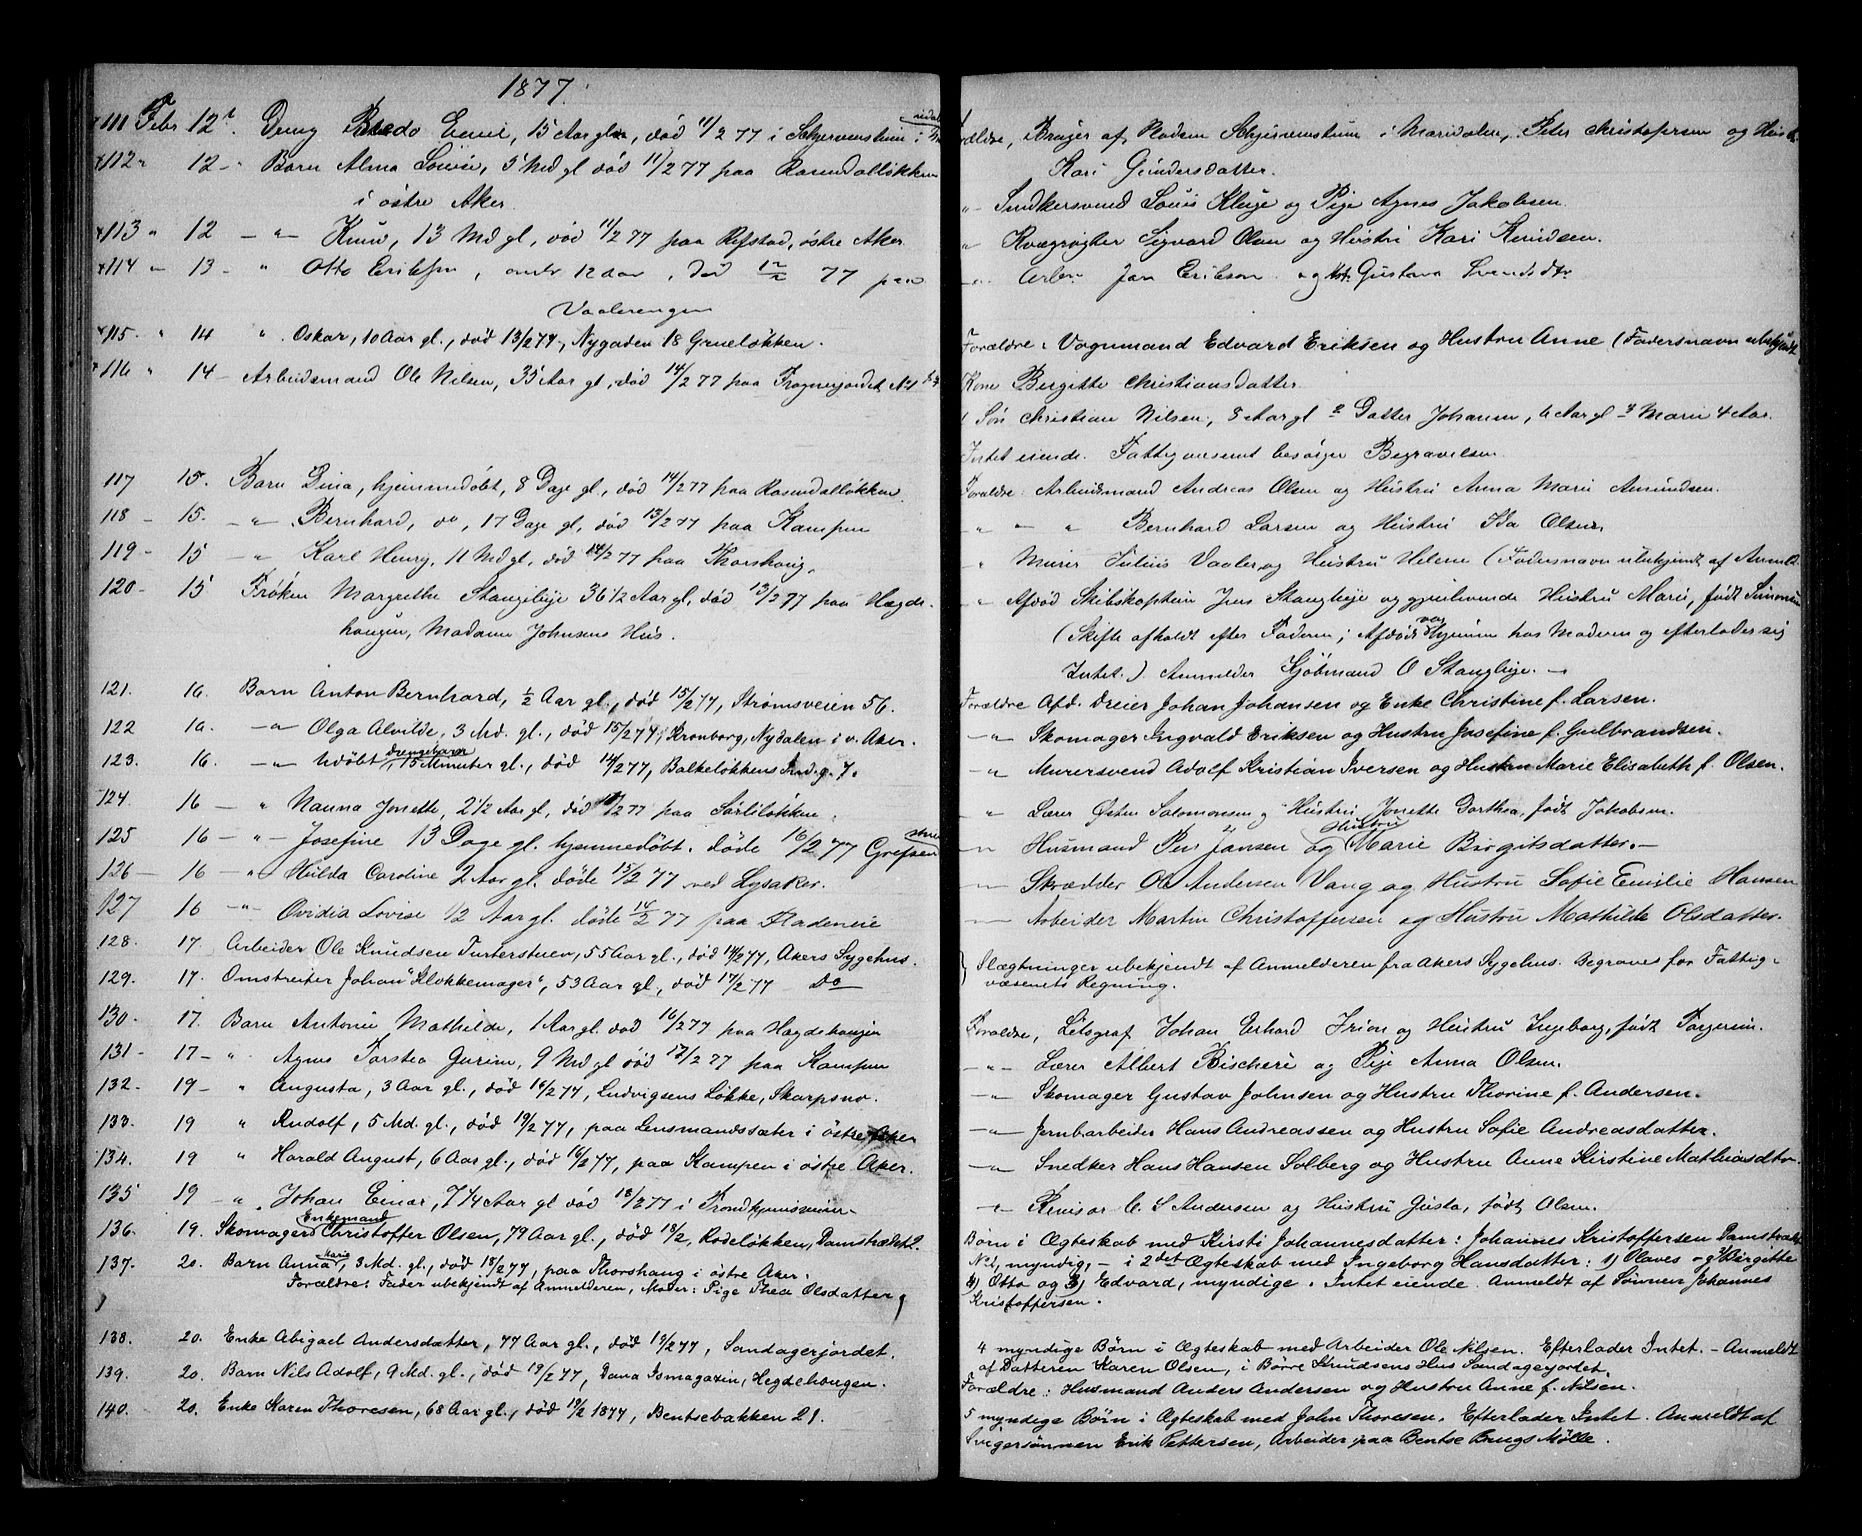 1877.
111 Febr 12t. Dreng Bredo Emil, 15 Aar gl, død 11/2 77 i Skjervenstuen i
112 " 12 - " Barn Alma Lovise, 5 Md gl død 11/2 77 paa Rosendalløkken
i østre Aker.
113 " 12 — " — Knud, 13 Md gl, død 11/2 77 paa Refstad, østre Aker.
114 - 13 - " Otto Eriksen, omtr 12 aar, død 12/2 77 paa
Vaalerengen
115. " 14 " Oskar, 10 Aar gl., død 13/2 77, Nygaden 18 Grueløkken.
116 " 14 - Arbeidsmand Ole Nilsen, 35 Aar gl, død 14/2 77 paa Frognerjordet No 1
117 15. Barn Dina, hjemmedøbt, 8 Dage gl, død 14/2 77 paa Rosendalløkken.
118 - 15. - " - Bernhard, do, 17 Dage gl, død 13/2 77 paa Kampen
119 - 15 - " Karl Henry, 11 Md gl, død 14/2 77 paa Thorshaug.
120 - 15 Frøken Margrethe Stangebye 36 1/2 Aar gl, død 13/2 77 paa Hægde-
haugen, Madame Johnsens Hus.
121. 16. Barn Anton Bernhard, 1/2 Aar gl., død 15/2 77, Strømsveien 56.
122 16. - " Olga Alvilde, 3 Md. gl., død 15/2 77, Kronborg, Nydalen i v. Aker.
123. 16. - " - Udøbt Drengebarn, 15 Minuter gl., død 14/2 77, Balkeløkkens Indg. 7.
124. 16 - " Nanna Jonette, 2 1/2 Aar gl, død /2 77 paa Sørliløkken.
125 16 — " — Josefine 13 Dage gl. hjemmedøbt. døde 16/2 77 Grefsen
126 — 16 — " Hulda Caroline 2 Aar gl. døde 15/2 77 ved Lysaker.
127 16 - " - Ovidia Lovise 1/2 Aar gl. døde 14/2 77 paa Fladeneie
128. 17. Arbeider Ole Knudsen Turterstuen, 55 Aar gl., død 14/2 77, Akers Sygehus.
129. 17. Omstreifer Johan "Klokkemager", 53 Aar gl, død 17/2 77 Do
130. 17. Barn Antonie Mathilde, 1 Aar gl. død 16/2 77 paa Hægdehaugen
131 - 17 - " Agnes Torstea Gurine, 9 Md gl død 17/2 77 paa Kampen
132. 19 - " Augusta, 3 Aar gl., død 16/2 77, Ludvigsens Løkke, Skarpsno.
133. 19 " Rudolf, 5 Md. gl., død 19/2 77, paa Lensmandssæter i østre Aker
134. 19 " Harald August, 6 Aar gl., død 16/2 77, paa Kampen i østre Aker.
135 19 - " Johan Einar, 7 1/4 Aar gl død 18/2 77 i Trondhjemsveien
136. 19. Skomager Enkemand Christoffer Olsen, 79 Aar gl., død 18/2, Rodeløkken, Damstrædet 2.
137. 20. Barn Anna Marie, 3 Md. gl., død 18/2 77, paa Thorshaug i østre Aker.
Forældre: Fader ubekjendt af Anmelderen, Moder: Pige Thea Olsdatter
138. 20. Enke Abigael Andersdatter, 77 Aar gl., død 19/2 77, Sandagerjordet.
139. 20. Barn Nils Adolf, 9 Md. gl., død 19/2 77, Dana Ismagazin, Hegdehougen.
140. - 20. Enke Karen Thoresen, 68 Aar gl., død 19/2 1877, Bentsebakken 21.
Forældre, Bruger af Pladsen Skjervenstuen i Maridalen, Peter Christofersen og Hust
Kari Gundersdatter.
" Snedkersvend Louis Kluge og Pige Agnes Jakobsen.
" Kvægrøgter Sigvard Olsen og Hustru Kari Knudsen.
- " Arbr Jan Erikson og Hst. Gustava Svendsdtr
Forældre: Vognmand Edvard Eriksen og Hustru Anne (Fadersnavn ubekjendt
Kone Birgitte Christiansdatter
1 Søn Christian Nilsen, 8 Aar gl 2 Datter Johanne, 6 Aar gl 3 Marie 4 Aar.
Intet eiende. Fattigvæsenet besørger Begravelsen.
Forældre: Arbeidsmand Andreas Olsen og Hustru Anna Marie Amundsen.
" - " Bernhard Larsen og Hustru Ida Olsen.
" Murer Julius Vaaler og Hustru Helene (Fadersnavn ubekjendt af Anmeld
" Afdød Skibskaptein Jens Stangebye og gjenlevende Hustru Marie, født Simonsen
(Skifte afholdt efter Faderen; Afdøde var hjemme hos Moderen og efterlader sig
Intet.) Anmelder Kjøbmand O Stangebye. —
Forældre Afd. Dreier Johan Johansen og Enke Christine f. Larsen.
- " Skomager Ingvald Eriksen og Hustru Josefine f. Gulbrandsen.
- " Murersvend Adolf Kristian Iversen og Hustru Marie Elisabeth f. Olsen.
- " Lærer Østen Salomonsen og Hustru Jonette Dorthea, født Jakobsen.
- " Husmand Per Jansen og Hustru Marie Birgitsdatter. —
- " Skrædder Ole Andersen Vang og Hustru Sofie Emilie Hansen
- " Arbeider Martin Christoffersen og Hustru Mathilde Olsdatter.
} Slægtninger ubekjendt af Anmelderen fra Akers Sygehus. Begraves for Fattig-
væsenets Regning.
Forældre, Litograf Johan Erhard Irion og Hustru Ingeborg, født Torgersen.
- " Lærer Albert Bischeri og Pige Anna Olsen.
- " Skomager Gustav Johnsen og Hustru Thorine f. Andersen.
- " Jernbarbeider Hans Andreassen og Hustru Sofie Andreasdatter.
- " Snedker Hans Hansen Solberg og Hustru Anne Kirstine Mathiasdtr.
" Revisor C. S Andersen og Hustru Gusta, født Olsen.
Børn i Ægteskab med Kirsti Johannesdatter: Johannes Kristoffersen Damstrædet
No 1, myndig, - i 2det Ægteskab med Ingeborg Hansdatter: 1) Olaves og 2) Birgitte
Otto og Edvard, myndige. Intet eiende. Anmeldt af Sønnen Johannes
Kristoffersen.
4 myndige Børn i Ægteskab med Arbeider Ole Nilsen. Efterlader Intet. - Anmeldt
af Datteren Karen Olsen, i Børre Knudsens Hus Sandagerjordet.
Forældre: Husmand Anders Andersen og Hustru Anne f. Nilsen.
5 myndige Børn i Ægteskab med John Thoresen. Efterlader Intet. Anmeldt af
Svigersønnen Erik Pettersen, Arbeider paa Bentse Brugs Mølle.